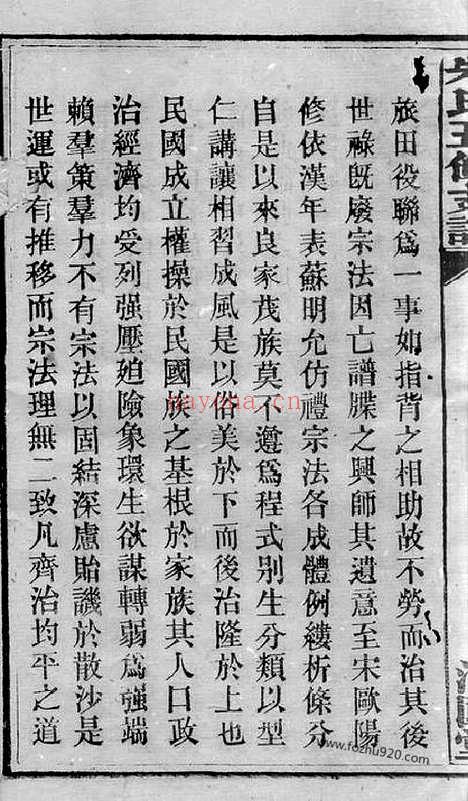 旅田役聯爲一事如指背之相助故不勞而治其後
世祿既廢宗法因亡譜牒之興師其遺意至宋歐陽
修依漢年表蘇明允仿禮宗法各成體例縷析條分
自是以來良家茂族莫不遵爲程式別生分類以型
仁講讓相習成風是以俗美於下而後治隆於上也
民國成立權操於民國族之基根於家族其人口政
治經濟均受列强壓廹險象環生欲謀轉弱爲强端
賴羣策羣力不有宗法以固結深慮貽譏於散沙是
世運或有推移而宗法理無二致凡齊治均平之道
nayona.cn
www.fozhu920.com